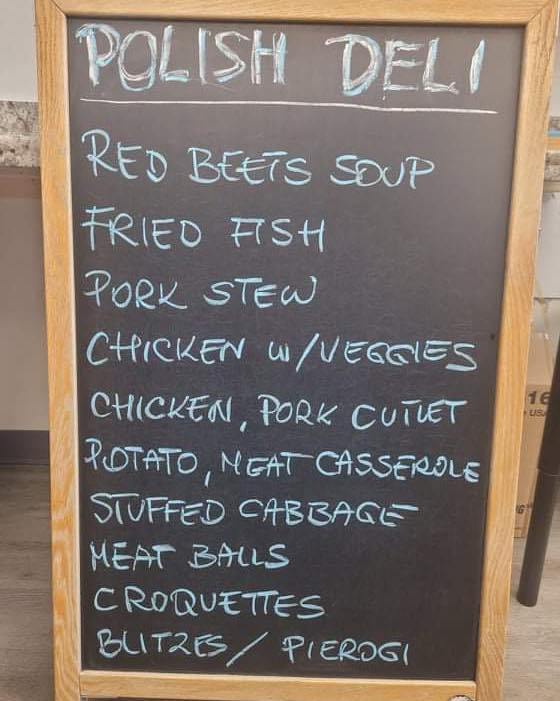 POLISH DELI
RED BEETS SOUP
FRIED FISH
PORK STEW
CHICKEN W/VEGGIES
CHICKEN, PORK CUTLET
POTATO, MEAT CASSEROLE
STUFFED CABBAGE
MEAT BALLS
CROQUETTES
BLITZES/ PIEROGI
16
USA